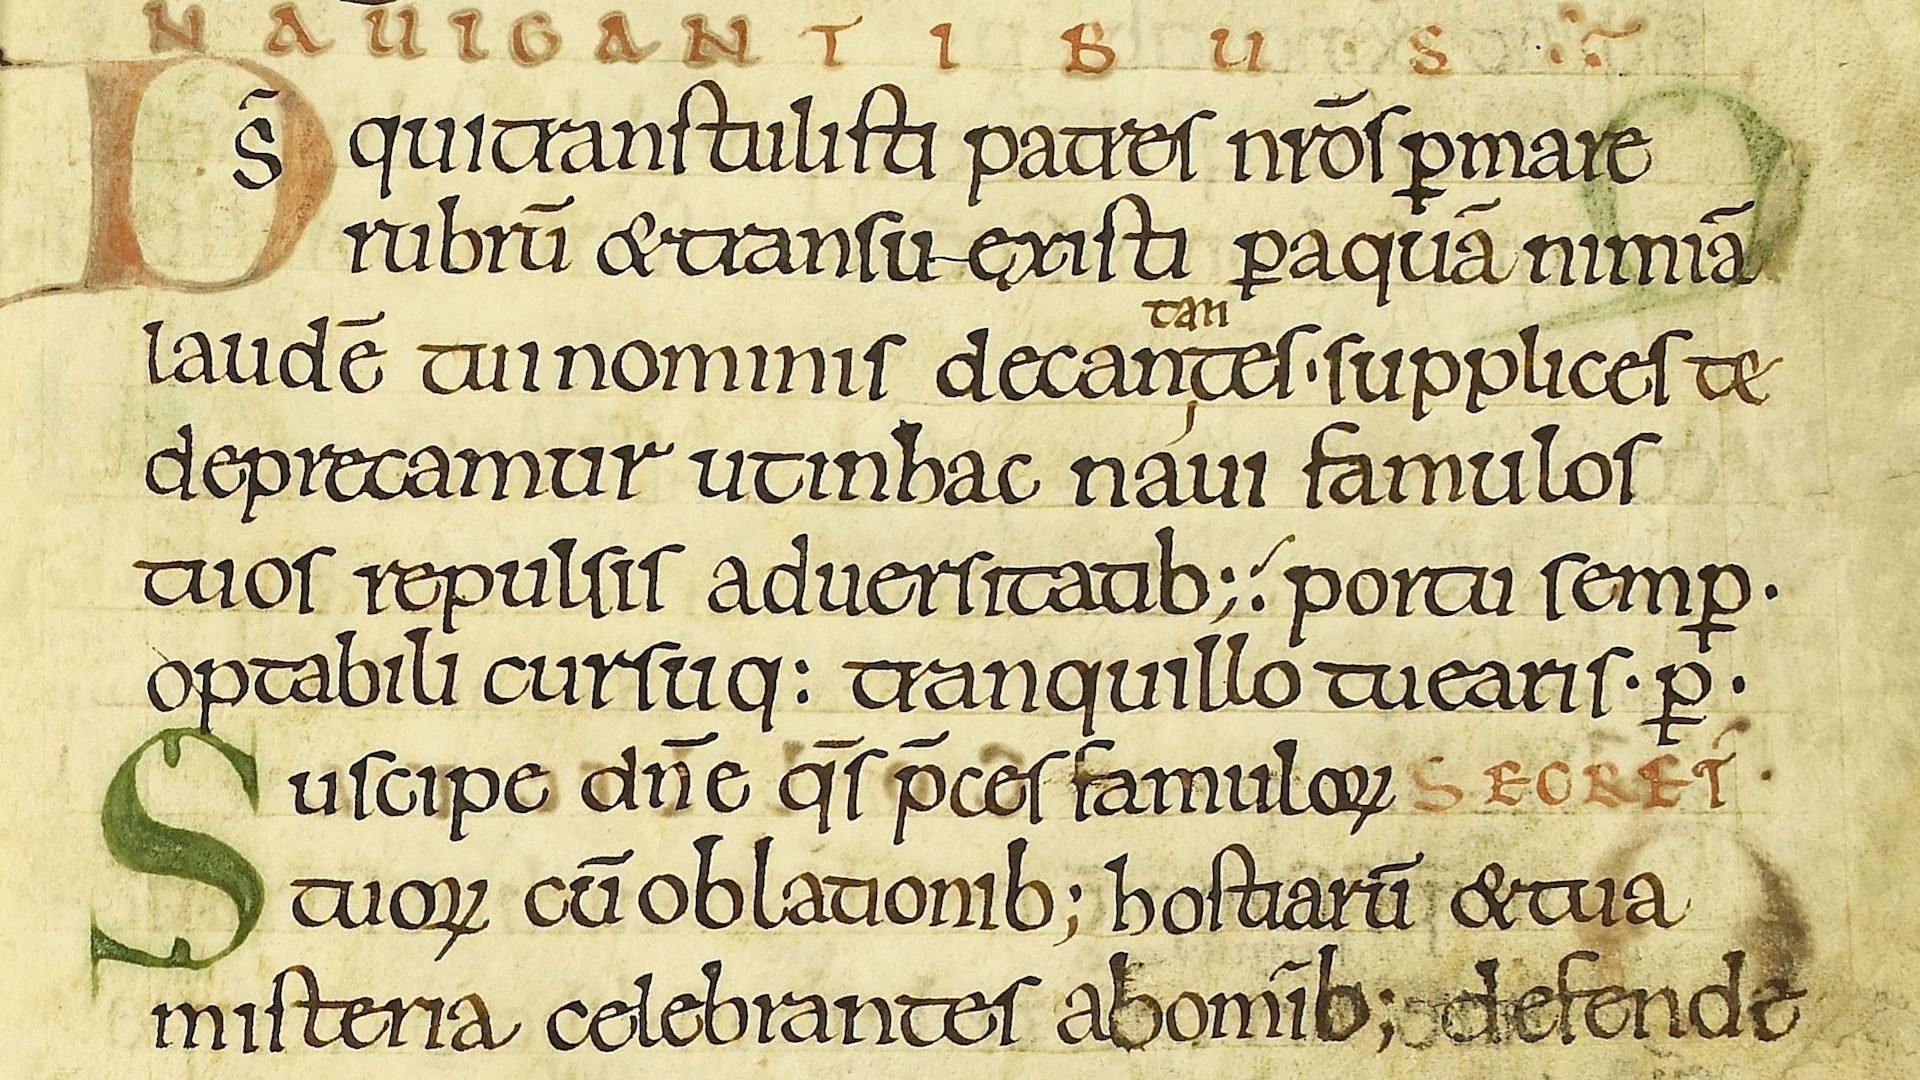 NAUIGANTIBUS
Ds̄ qui transtulisti patres nr̄os ꝑ mare
rubrū & transu-existi ꝑ aquā nimiā
laudē tui nominis decantes·supplices te
tan
deprecamur ut in hac naui famulos
tuos repulsis aduersitatib; portu semꝑ·
optabili cursuq: tranquillo tuearis·ꝑ·
Suscipe dn̄e q̄s p̄ces famuloꝝ SECRET·
tuoꝝ cū oblationib; hostiarū & tua
misteria celebrantes ab om̄ib; defende